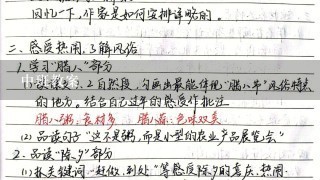 回忆一下,作家是如何安排详略的。
二、感受热闹,了解风俗
1.学习“腊八”部分
1、2自然段,勾画出最能体现“腊八节”风俗特点
的地方。结合自己过年的感受作批注
腊八粥:食材多 腊八蒜:色味双美
(2)品读句子“这不是粥,而是小型的农业产品展览会”
2.品读“除夕”部分
(1)抓关键词“赶做,到处”等感受除夕的喜庆、热闹